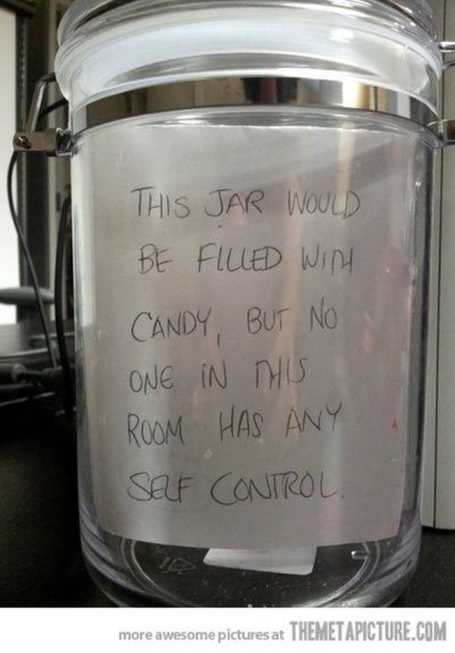 THIS JAR WOULD
BE FILLED WITH
CANDY, BUT NO
ONE IN THIS
ROOM HAS ANY
SELF CONTROL.
more awesome pictures at THEMETAPICTURE.COM